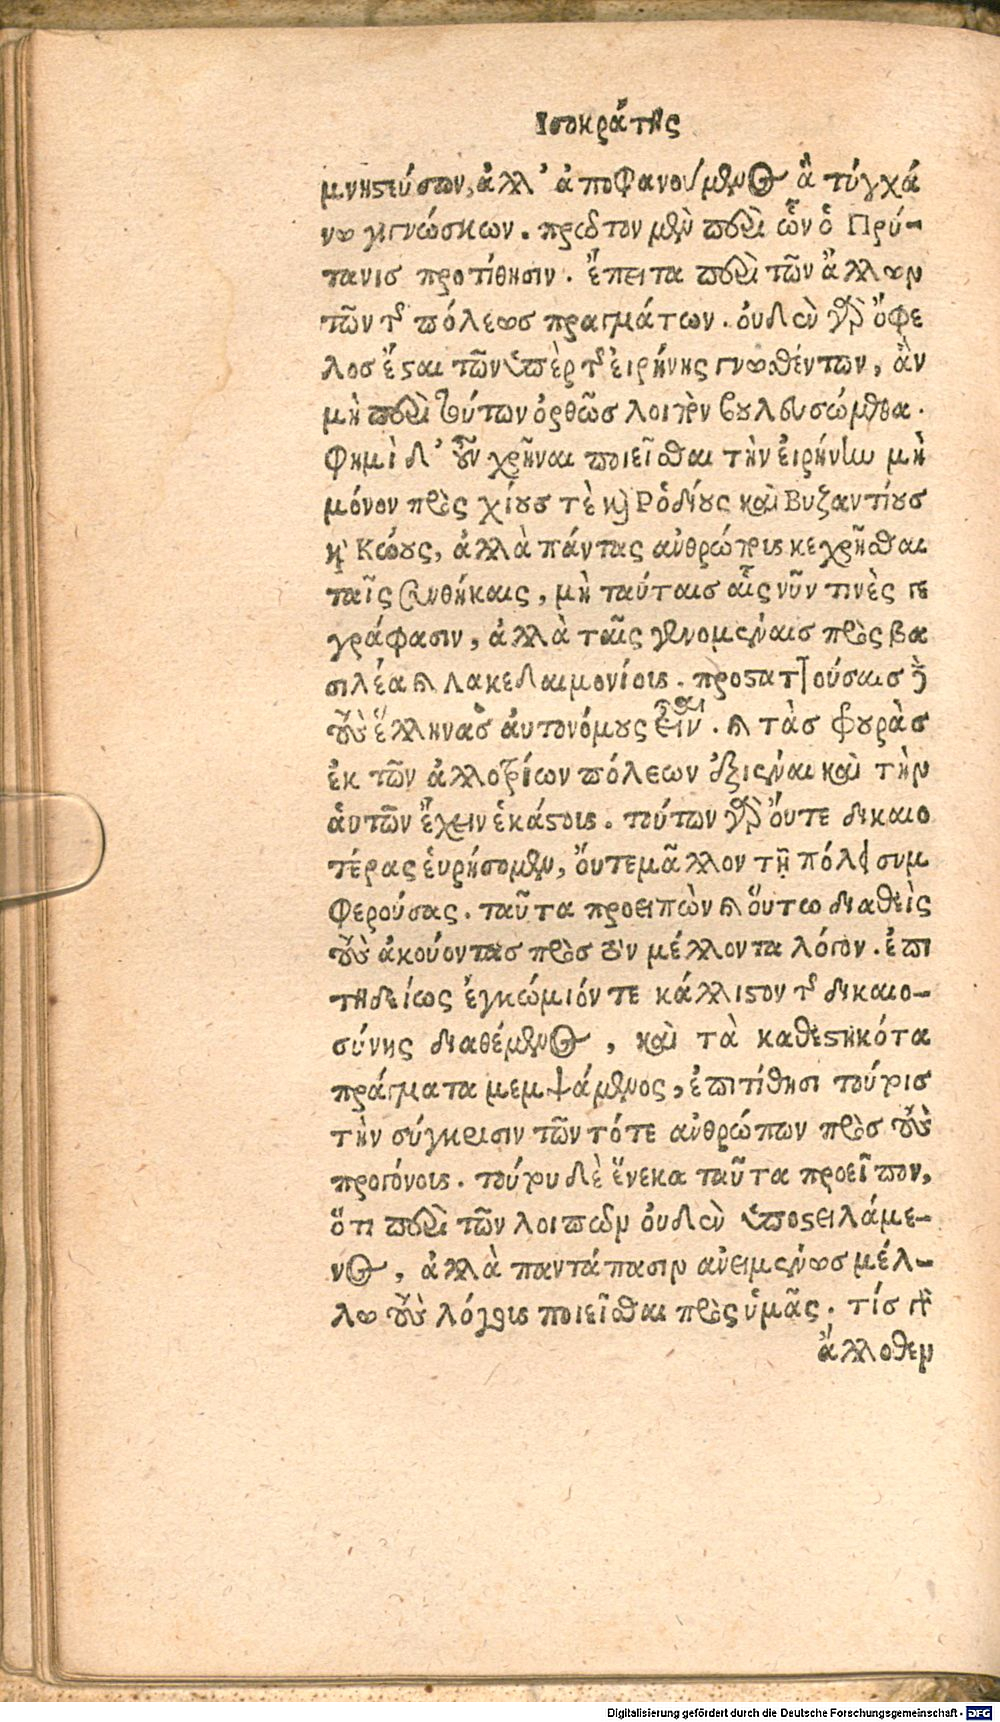 Ισοκράτης
μνηστεύσων, ἀλλ' ἀποφανούμενος ἃ τυγχά
νω γιγνώσκων. πρῶτον μὲν περὶ ὧν ὁ Πρύ-
τανισ προτίθησιν. ἔπειτα περὶ τῶν ἄλλων
τῶν τῆς πόλεωσ πραγμάτων. ὀυδὲν γὰρ ὄφε
λοσ ἔσται τῶν ὑπὲρ τῆς ἐιρήνης γνωσθέντων, ἂν
μὴ περὶ τούτων ὀρθῶσ λοιπὸν βουλευσώμεθα.
Φημὶ δ' οὖν χρῆναι ποιεῖσθαι τὴν ἐιρήνην μὴ
μόνον πρὸς χίουσ τὲ καὶ Ροδίους καὶ Βυζαντίουσ
καὶ Κώους, ἀλλὰ πάντας ἀνθρώποις κεχρῆσθαι
ταῖς συνθήκαις, μὴ ταύταισ αἷς νῦν τινὲς γε
γράφασιν, ἀλλὰ ταῖς γενομέναισ πρὸς βα
σιλέα καὶ Λακεδαιμονίοις. προστατ]ούσαισ
τοὺς ἕλληνασ ἀυτονόμους εἶναι. καὶ τὰσ φουρὰσ
ἐκ τῶν ἀλλοτρίων πόλεων ἐξιέναι καὶ τὴν
ἁυτῶν ἔχειν ἑκάστοις. τούτων γὰρ ὄυτε δικαιο
τέρας ἑυρήσομεν, ὄυτεμᾶλλον τῇ πόλει συμ
φερούσας. ταῦτα προειπὼν καὶ ὅυτω διαθεὶς
τοὺς ἀκούοντασ πρὸσ τὸν μέλλοντα λόγον. ἐπι
τηδείως ἐγκώμιόν τε κάλλιστον τῆς δικαιο-
σύνης διαθέμενος, καὶ τὰ καθεστηκότα
πράγματα μεμψάμενος, ἐπιτίθησι τούτοισ
τὴν σύγκρισιν τῶν τότε ἀνθρώπων πρὸσ τοὺς
προγόνους. τούτου δὲ ἕνεκα ταῦτα προεῖπον,
ὅτι περὶ τῶν λοιπῶν ὀυδὲν ὑποστειλάμε-
νος, ἀλλὰ παντάπασιν ἀνειμένωσ μέλ-
λω τοὺς λόγους ποιεῖσθαι πρὸς ὑμᾶς. τίσ γὰρ
ἄλλοθεν
Digitalisierung gefördert durch die Deutsche Forschungsgemeinschaft - DFG